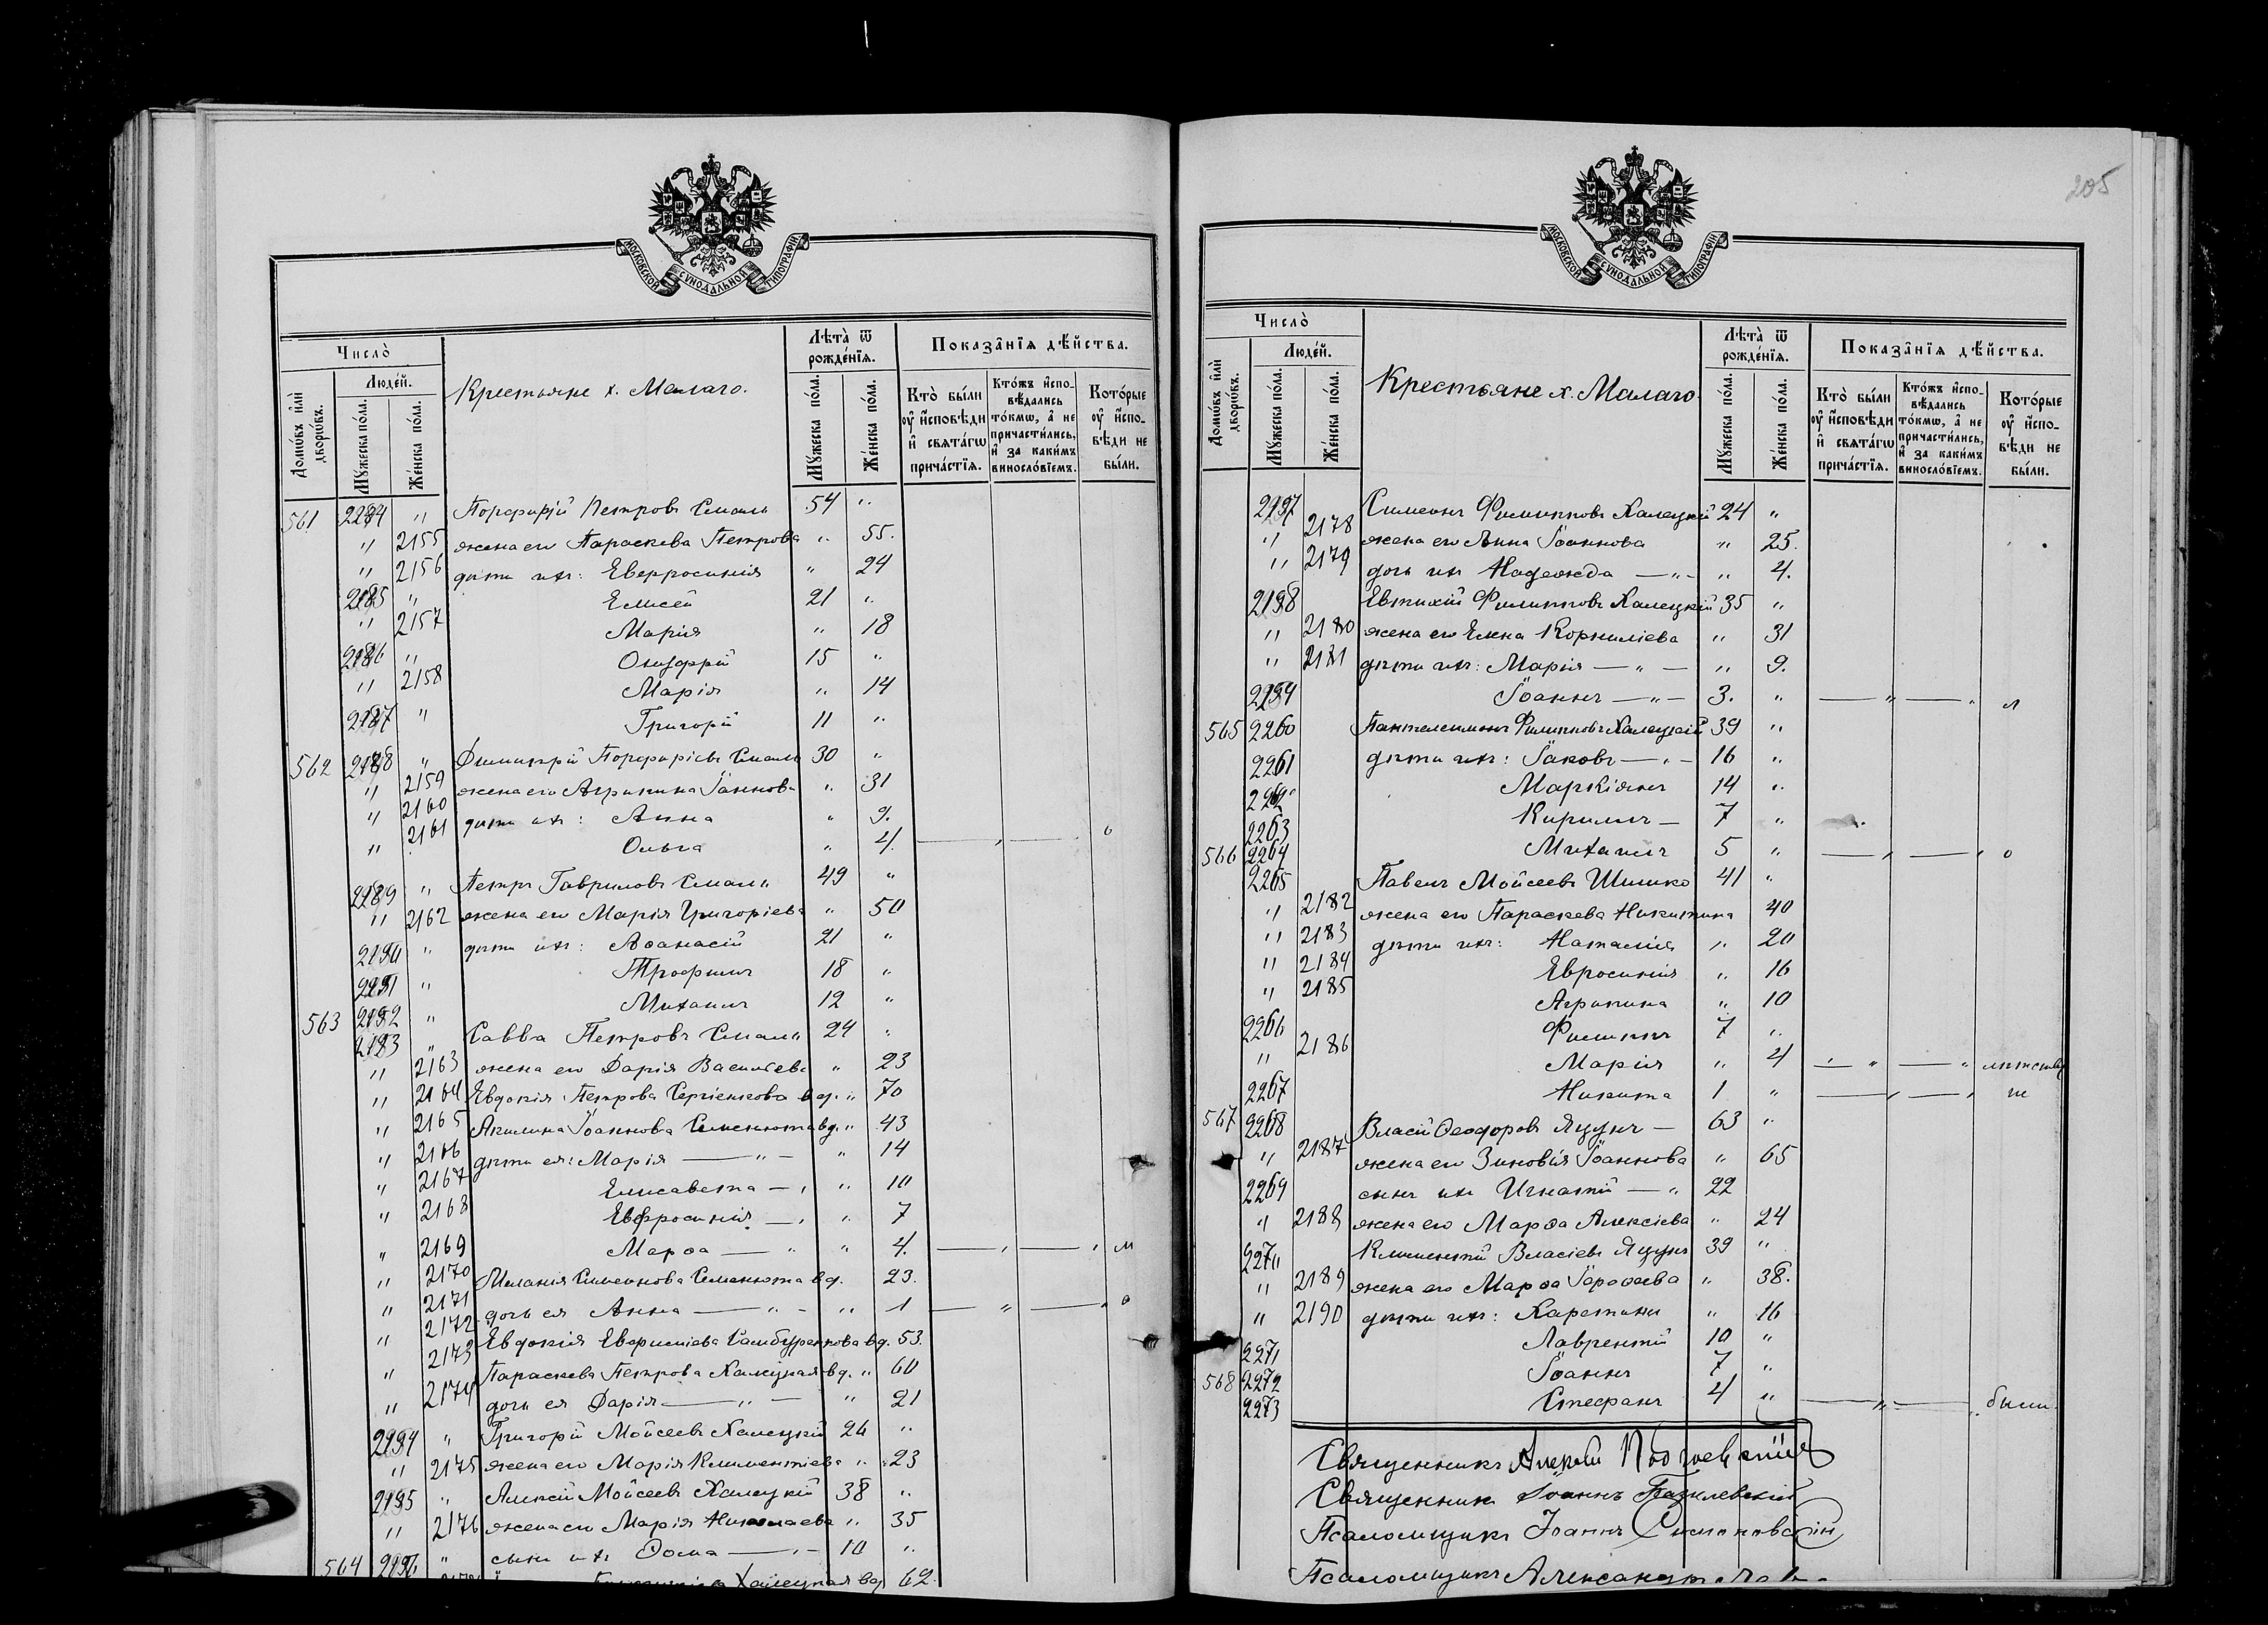 МОСКОВСКОЙ СѴНОДАЛЬНОЙ ТИПОГРАФІИ
Число̀
Людей.
Домѡвъ и҆лѝ дворѡвъ.
Мꙋжеска по́ла.
Же́нска по́ла.
Крестьяне х. Малаго.
Лѣта̀ ѿ рожде́нїѧ.
Мꙋжеска по́ла.
Же́нска по́ла.
Показа̑нїѧ дѣ́йства.
Кто̀ бы́ли ᲂу҆ и҆сповѣди и҆ свѧта́гѡ прича́стїѧ.
Кто́жъ и҆спо-вѣдались то́кмѡ, а҆ не причасти́лись, и҆ за каки́мъ винослові́емъ.
Кото́рые ᲂу҆ и҆спо-вѣди не бы́ли.
561 2184 " Порфирій Петровъ Смаль 54 "
" 2155 жена его Параскева Петрова " 55.
" 2156 дѣти ихъ: Евфросинія " 24
2185 " Елисей 21 "
" 2157 Марія " 18
2186 " Онуфрій 15 "
" 2158 Марія " 14
2187 " Григорій 11 "
562 2188 " Димитрій Порфиріевъ Смаль 30 "
" 2159 жена его Агрипина Іоаннова " 31
" 2160 дѣти ихъ: Анна " 9.
" 2161 Ольга " 4.
2189 " Петръ Гавриловъ Смаль 49 "
" 2162 жена его Марія Григоріева " 50
2190 " дѣти ихъ: Аѳанасій 21 "
2191 " Трофимъ 18 "
563 2192 " Михаилъ 12 "
2193 " Савва Петровъ Смаль 24 "
" 2163 жена его Дарія Васильева " 23
" 2164 Евдокія Петрова Сергіенкова вд. " 70
" 2165 Акилина Іоаннова Семенюта вд. " 43
" 2166 дѣти ея: Марія — " — " 14
" 2167 Елисавета — " " 10
" 2168 Евфросинія — " " 7
" 2169 Марѳа — " " 4.
" 2170 Меланія Симеонова Семенюта вд. 23.
" 2171 дочь ея Анна — " — " 1
" 2172 Евдокія вд. 53.
" 2173 Параскева Петрова Халецкая вд. " 60
" 2174 дочь ея Дарія — " — " 21
2194 " Григорій Мойсеевъ Халецкій 24 "
" 2175 жена его Марія Климентіева " 23
2195 " Алексій Мойсеевъ Халецкій 38 "
" 2176 жена его Марія Николаева " 35
564 2196 " сынъ ихъ Ѳома — " — 10 "
Халецкая вд 62.
205
МОСКОВСКОЙ СѴНОДАЛЬНОЙ ТИПОГРАФІИ
Число̀
Людей.
Домѡвъ и҆лѝ дворѡвъ.
Мꙋжеска по́ла.
Же́нска по́ла.
Крестьяне х. Малаго
Лѣта̀ ѿ рожде́нїѧ.
Мꙋжеска по́ла.
Же́нска по́ла.
Показа̑нїѧ дѣ́йства.
Кто̀ бы́ли ᲂу҆ и҆сповѣди и҆ свѧта́гѡ прича́стїѧ.
Кто́жъ и҆спо-вѣдались то́кмѡ, а҆ не причасти́лись, и҆ за каки́мъ винослові́емъ.
Кото́рые ᲂу҆ и҆спо-вѣди не бы́ли.
2197 Симеонъ Филипповъ Халецкій 24 "
" 2178 жена его Анна Іоаннова " 25.
" 2179 дочь ихъ Надежда — " — " 4.
2198 Евтихій Филипповъ Халецкій 35 "
" 2180 жена его Елена Корниліева " 31
" 2181 дѣти ихъ: Марія — " — " 9.
Іоаннъ — " — 3. "
565 2260 Пантелеимонъ Филипповъ Халецкій 39 "
2261 дѣти ихъ: Іаковъ — " — 16 "
2262 Маркіянъ 14 "
2263 Кирилъ — 7 "
566 2264 Михаилъ 5 "
2265 Павелъ Мойсеевъ Шишко 41 "
" 2182 жена его Параскева Никитина 40
" 2183 дѣти ихъ: Наталія " 20
" 2184 Евросинія " 16
" 2185 Агрипина " 10
2266 Филиппъ 7 "
" 2186 Марія " 4
2267 Никита 1 "
567 2268 Власій Ѳеодоровъ Яцунъ — 63 "
" 2187 жена его Зиновія Іоаннова " 65
2269 сынъ ихъ Игнатій — " 22
" 2188 жена его Марѳа Алексіева " 24
2270 Климентій Власіевъ Яцунъ 39 "
" 2189 жена его Марѳа " 38.
" 2190 дѣти ихъ: Харетина " 16
2271 Лаврентій 10 "
568 2272 Іоаннъ 7 "
2273 Стефанъ 4 " — " — " были.
Священникъ Алексій
Священникъ Іоаннъ Базилевскій
Псаломщикъ Іоаннъ Симоновскій
Псаломщикъ Александръ